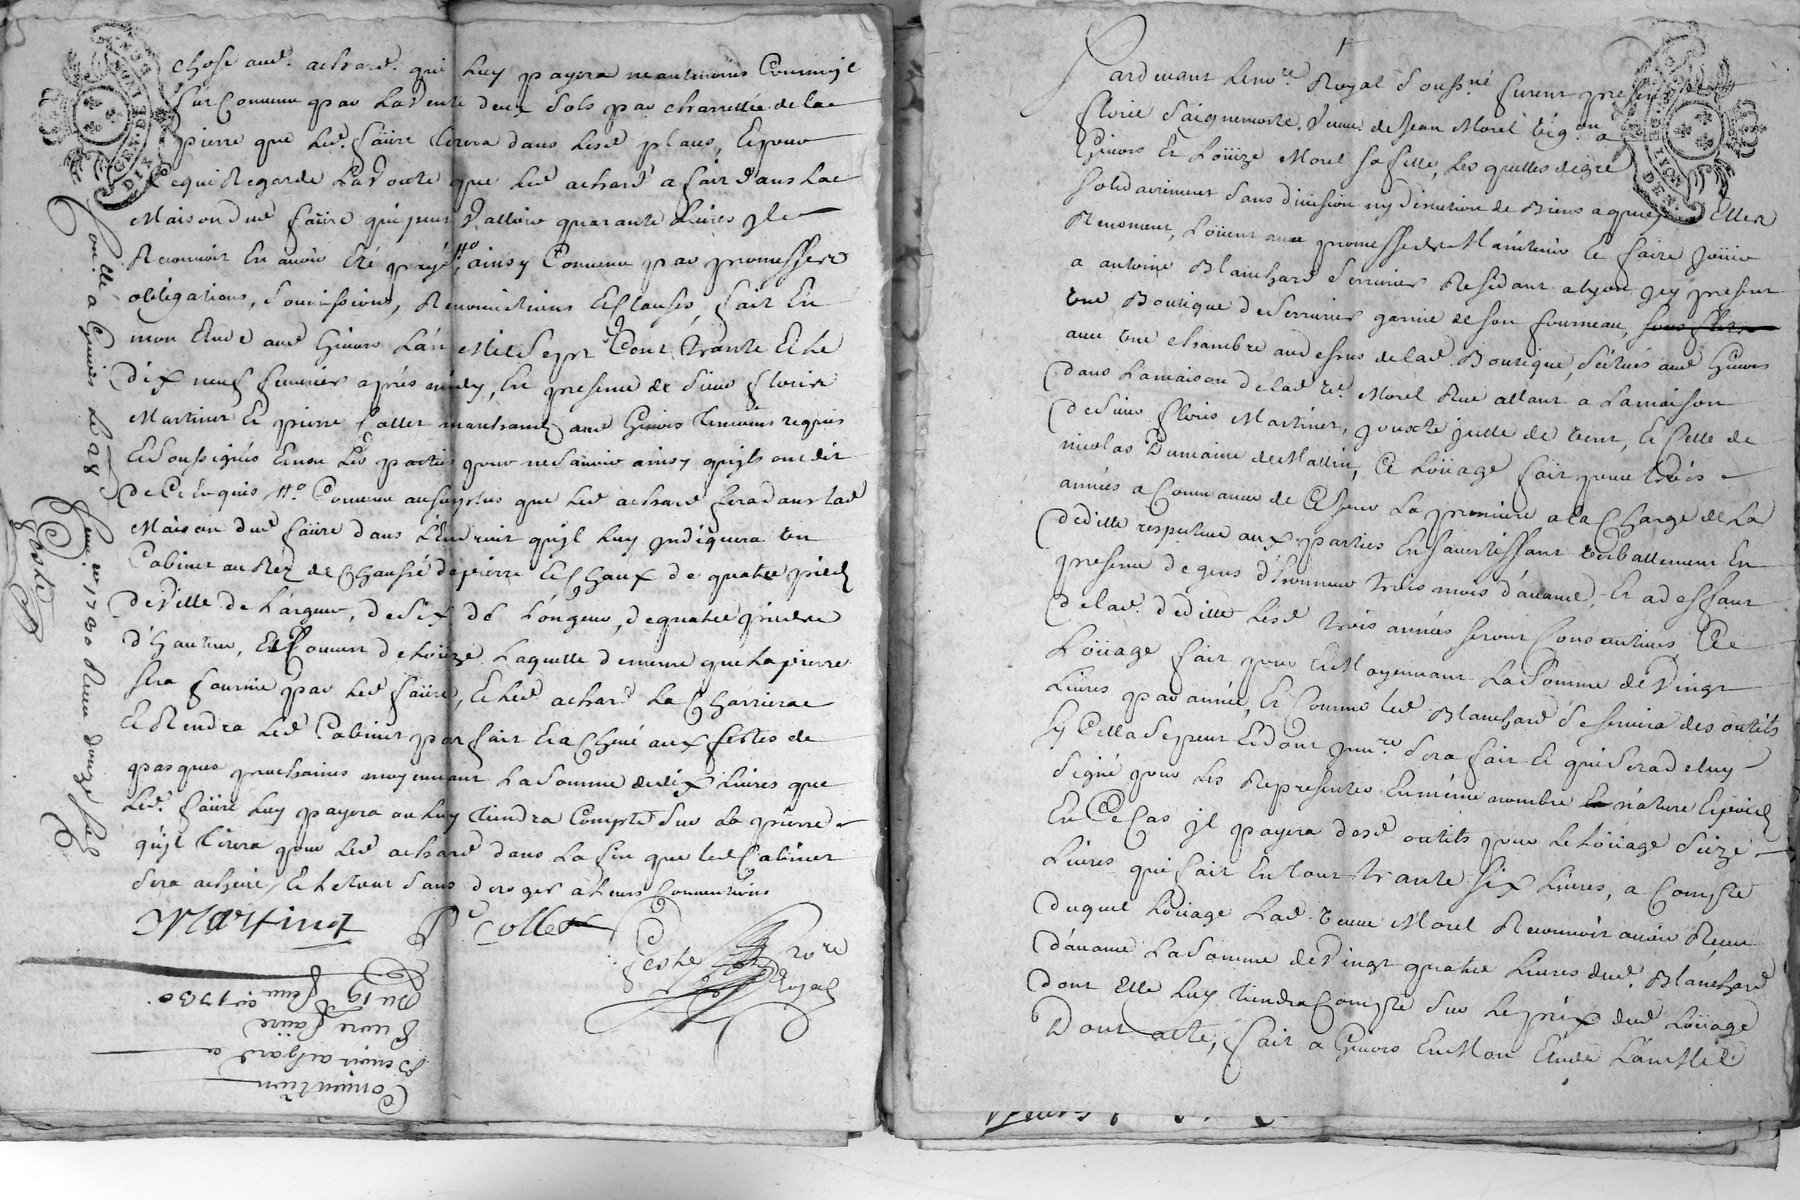 chose aud. achard. qui luy payera neantmoins comm'jl
est convenu par la vente deux sols par charretée de la
pierre que led. faûre tirera dans lesd. plans, Et pour
ce qui Regarde la voute que led achard a fait dans la
Maison dud faûre qui peut valloir quarante Livres jl
Reconnoit En avoir Eté payé, ainsy convenu par promesses
obligations, soumissions, Renonciations Et clauses, fait En
mon Etude aud Givors L'an Mil sept Cent trante Et le
dix neuf fevrier après midy, En presence de sieur floris
Martinet Et pierre Collet marchands aud Givors temoins requis
Et soussignés Et non les parties pour ne sçavoir ainsy qu'jls ont dit
de ce Enquis, convenu au surplus que led achard fera dans lad
Maison dud faûre dans L'Endroit qu'jl luy jndiquera un
Cabinet au Rez de Chaussé de pierre Et Chaux de quatre pieds
de ville de Largeur, de six de Longeur, de quatre pieds
d'hauteur, Et Couvert de Loüize Laquelle de meme que la pierre
sera fournie par led faûre, Et led achard La Charriera
Et Rendra led Cabinet parfait Et achevé aux festes de
pasques prochaines moyennant La somme de dix Livres que
led. faûre luy payera ou luy tiendra compte sur la pierre
qu'jl tirera pour led achard dans La fin que led Cabinet
sera achevé, Et le tout sans deroger a leurs Conventions
Martinet P. Collet
Geste No.re Royal
Con.lle a Givors Le 28 fevr. 1730 Receu douze sols
Geste
Convention
Benoit achard Et
pierre faûre
Du 19 fevrier 1730
Pardevant Le no.re Royal soussné furent presentes
florie Saignemorte, veuve de Jean Morel vig.on a
Givors Et Loüize Morel sa fille, Les quelles de gré
solidairement sans division ny discution de Biens a quoy Elles
Renoncent, Loüent avec promesse de Maintenir Et faire joüir
a antoine Blanchard serrurier Residant a Lyon jcy present
une Boutique de serrurier garnie de son fourneau,
avec une chambre au dessus de lad Boutique, scituées aud Givors
dans La maison de lad ve. Morel Rue allant a la maison
de sieur floris Martinet, jouxte jcelle de vent, Et celle de
nicolas Dumaine de Matin, Ce Loüage fait pour trois
années a Commancer de Ce jour La premiere a la Charge de La
deditte respective aux parties En s'avertissant verballement En
presence de gens d'honneur trois mois d'avance, Et a deffaut
de lad. dédite lesd trois années seront Consecutives Ce
Loüage fait pour Et Moyennant La somme de Vingt
Livres par année, Et Comme led Blanchard se servira des outils
sy Cella se peut Et dont jnv.re sera fait Et qui sera de luy
signé pour les Representer En méme nombre nature Et poids
En Ce Cas jl payera desd outils pour le Loüage seize
Livres qui fait En tout trante six Livres, a Compte
duquel Loüage Lad. veuve Morel Reconnoit avoir Receu
d'avance La somme de Vingt quatre Livres dud. Blanchard
dont Elle luy tiendra Compte sur le prix dud Loüage
Dont acte, fait a Givors En Mon Etude L'an Mil